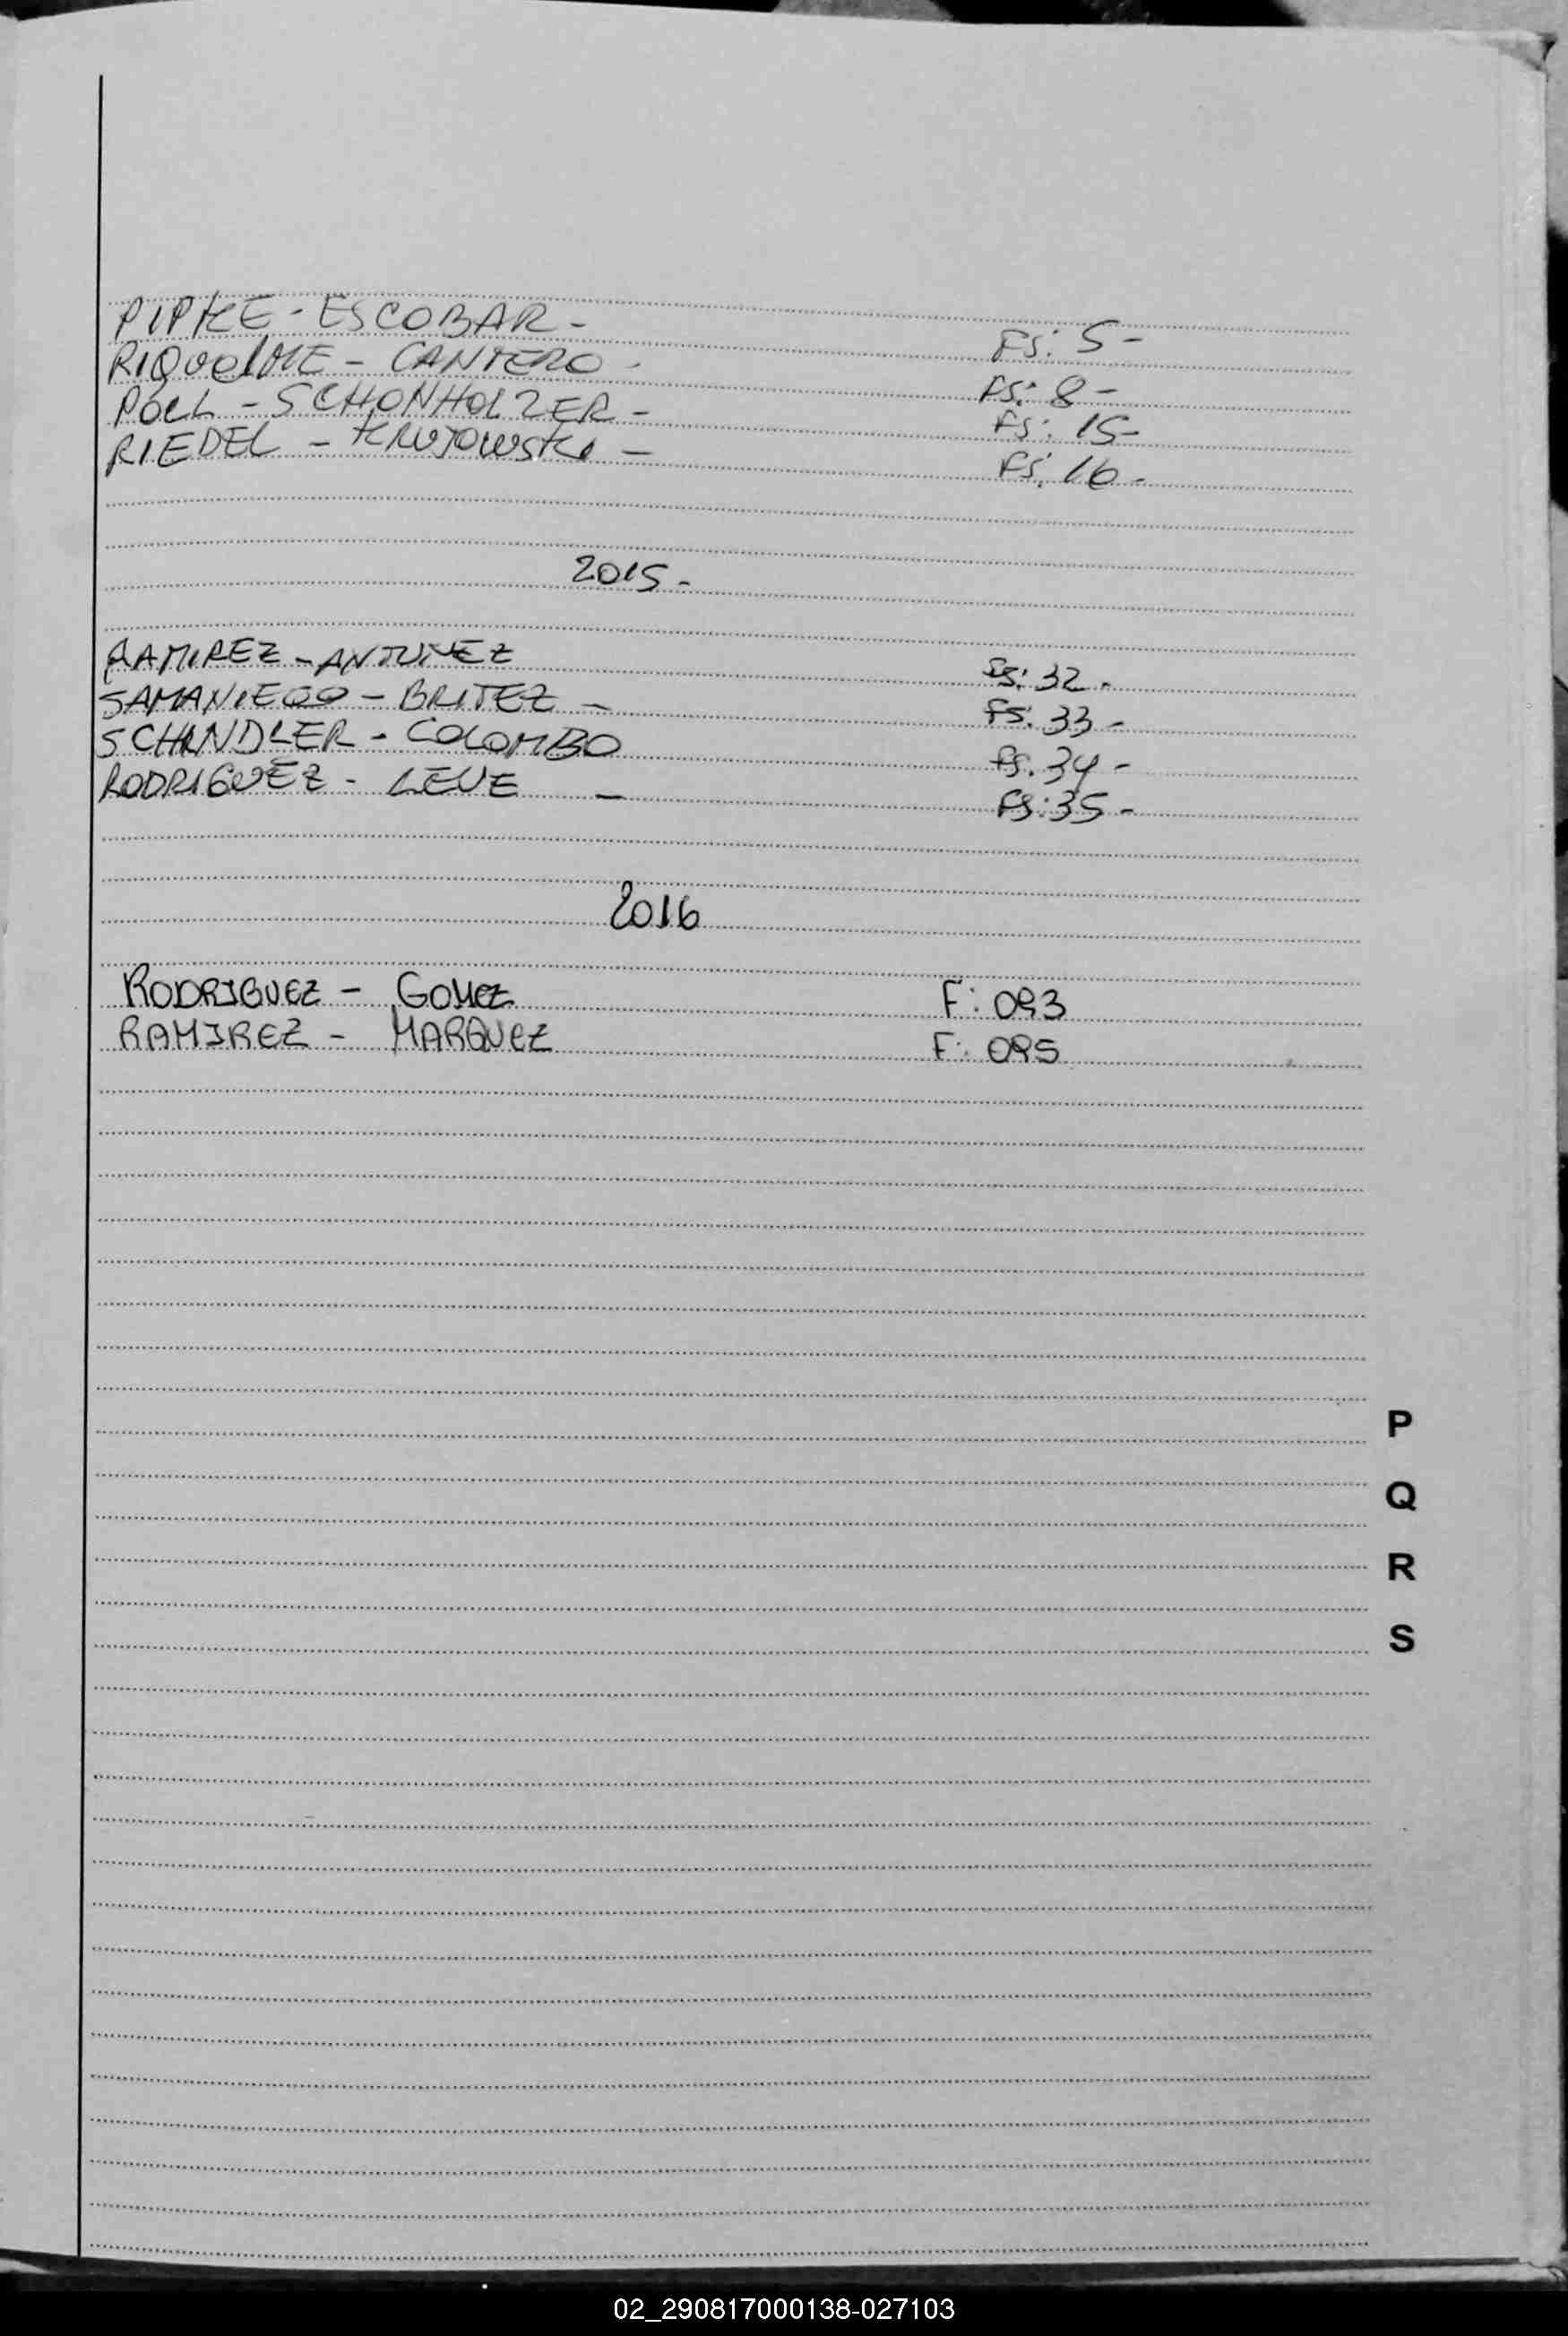 PIPKE - ESCOBAR - Fs: 5 -
RIQUELME - CANTERO - Fs: 8 -
PÖLL - SCHONHOLZER - Fs: 15 -
RIEDEL - KRUJOWSKI - Fs: 16 -
2015 -
RAMIREZ - ANTUNEZ Fs: 32 -
SAMANIEGO - BRITEZ - Fs: 33 -
SCHINDLER - COLOMBO Fs. 34 -
RODRIGUEZ - LEUE - Fs: 35 -
2016
RODRIGUEZ - GOMEZ F: 093
RAMIREZ - MARQUEZ F: 095
P
Q
R
S
02_290817000138-027103